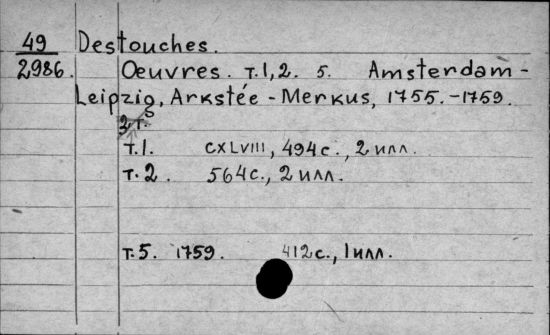 49 Destouches.
2986. Oeuvres. т.1,2. 5. Amsterdam-
Leipzig, Arkstée - Merkus, 1755.-1759.
т.1. CXLVIII, 494с., 2 илл.
т.2. 564с., 2 илл.
т.5. 1759. 412с., 1 илл.